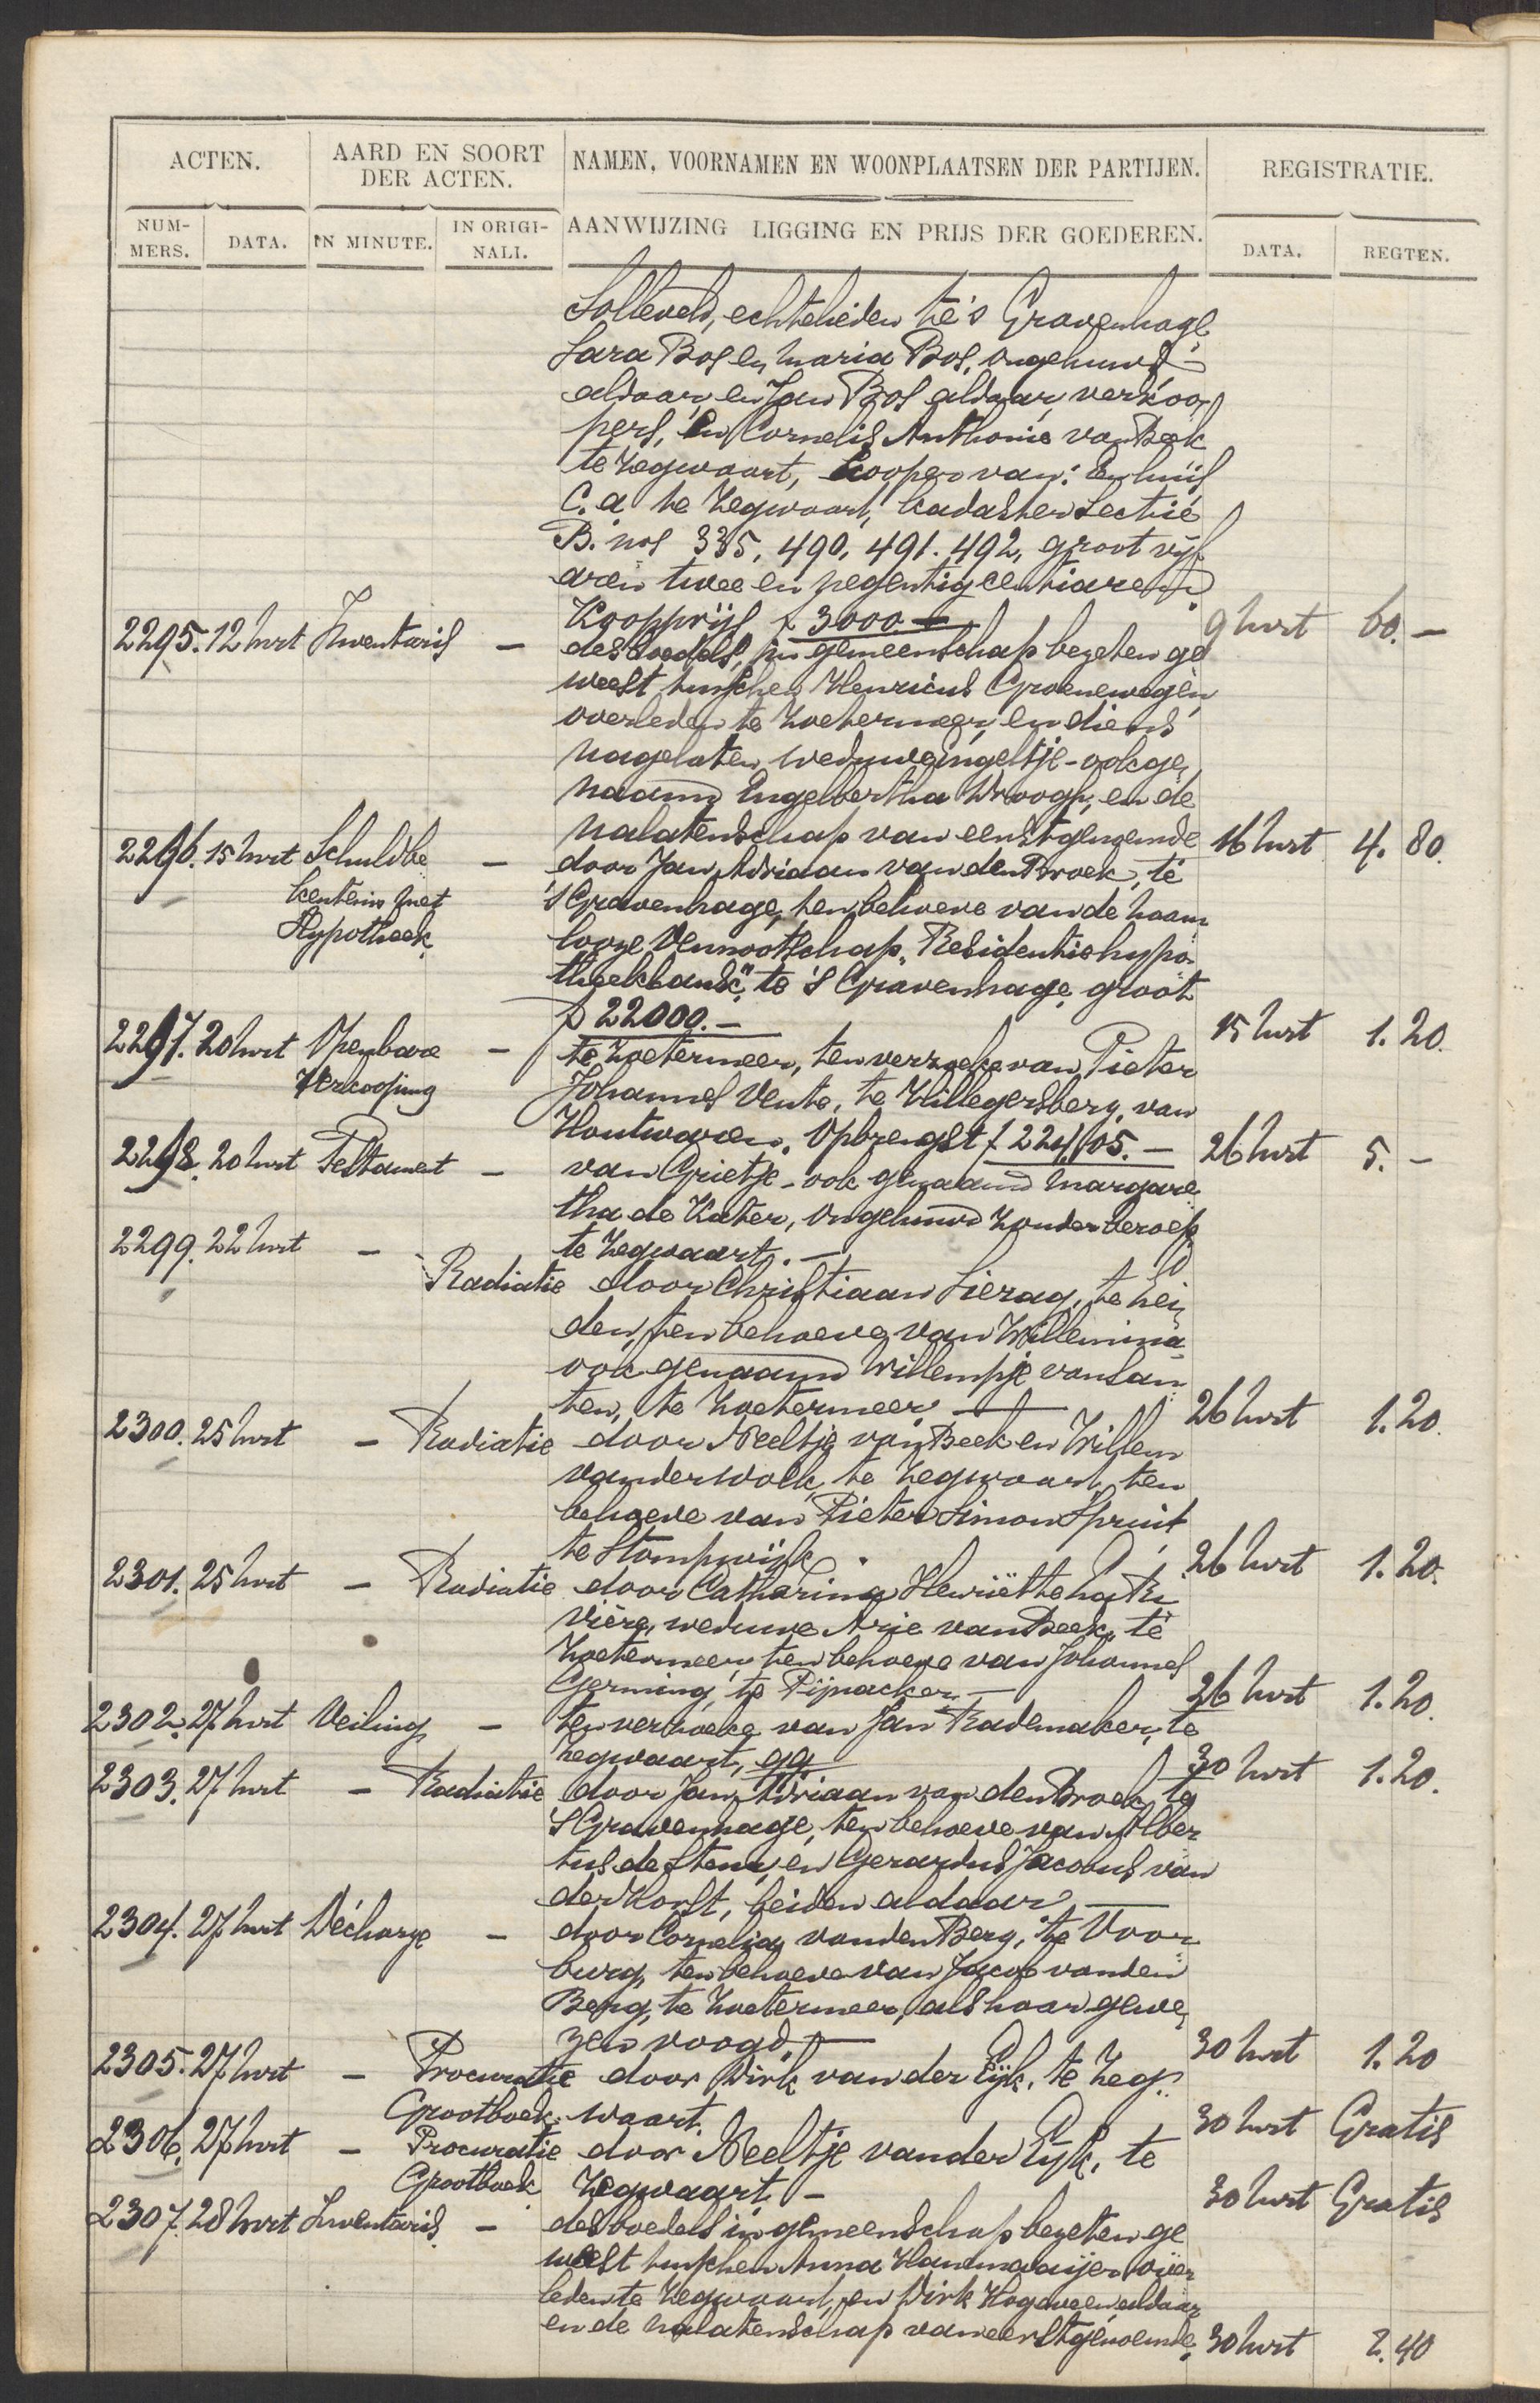 ACTEN. AARD EN SOORT DER ACTEN. NAMEN, VOORNAMEN EN WOONPLAATSEN DER PARTIJEN. REGISTRATIE.
NUM-MERS. DATA. IN MINUTE. IN ORIGI-NALI. AANWIJZING LIGGING EN PRIJS DER GOEDEREN. DATA. REGTEN.
Solleveld, echtelieden te 's Gravenhage
Sara Bos en Maria Bos, ongehuwd
aldaar, en Jan Bos aldaar, verkoo
pers, en Cornelis Anthonie van Beek
te Zegwaart, kooper van: Een huis
C.a te Zegwaart, kadaster Sectie
B. nos 335, 490, 491. 492, groot vijf
aren twee en negentig centiaren.
Koopprijs f 3000.- 9 Mrt 60.-
2295. 12 Mrt Inventaris - des boedels, in gemeenschap bezeten ge
weest tusschen Henricus Groenewegen,
overleden te Zoetermeer, en diens
nagelaten weduwe Engeltje - ook ge
naamd Engelbertha Droogh, en de
nalatenschap van eerstgenoemde 16 Mrt 4.80.
2296. 15 Mrt Schuldbe - door Jan Adriaan van den Broek, te
kentenis met 's Gravenhage, ten behoeve van de Naam
Hypotheek looze Vennootschap "Residentie hypo
theekbank", te 's Gravenhage, groot
f 22000.- 15 Mrt 1.20.
2297. 20 Mrt Openbare - te Zoetermeer, ten verzoeke van Pieter
Verkooping Johannes Vente, te Hillegersberg, van
Houtwaren. Opbrengst f 224,05.- 26 Mrt 5.-
2298. 20 Mrt Testament - van Grietje - ook genaamd Margare
tha de Kater, ongehuwd zonder beroep
2299. 22 Mrt - te Zegwaart.-
Radiatie door Christiaan Sierag, te Lei
den, ten behoeve van Willemina -
ook genaamd Willempje van San
ten, te Zoetermeer - 26 Mrt 1.20.
2300. 25 Mrt - Radiatie door Neeltje van Beek en Willem
van der Wolk, te Zegwaart, ten
behoeve van Pieter Simon Spruit
te Stompwijk. 26 Mrt 1.20.
2301. 25 Mrt - Radiatie door Catharina Henriëtte La Ri
vière, weduwe Arie van Beek, te
Zoetermeer, ten behoeve van Johannes
Germing, te Pijnacker - 26 Mrt 1.20.
2302. 27 Mrt Veiling - ten verzoeke van Jan Rademaker, te
Zegwaart, 30 Mrt 1.20.
2303. 27 Mrt - Radiatie door Jan Adriaan van den Broek, te
's Gravenhage, ten behoeve van Alber
tus de en Gerardus Jacobus van
der Horst, beiden aldaar -
2304. 27 Mrt Décharge - door Cornelia van den Berg, te Voor
burg, ten behoeve van Jacob van den
Berg, te Zoetermeer, als haar gewe
zen voogd.- 30 Mrt 1.20
2305. 27 Mrt - Procuratie door Dirk van der Eijk, te Zeg
Grootboek waart. 30 Mrt Gratis
2306. 27 Mrt - Procuratie door Neeltje van der Eijk, te
Grootboek Zegwaart - 30 Mrt Gratis
2307. 28 Mrt Inventaris - des boedels in gemeenschap bezeten ge
weest tusschen Anna over
leden te Zegwaart, en Dirk Hogeveen aldaar
en de nalatenschap van eerstgenoemde. 30 Mrt 2.40